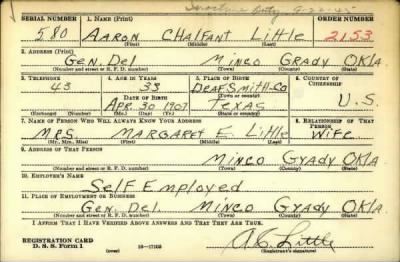 Duty 9-20-45
SERIAL NUMBER 1. NAME (Print) ORDER NUMBER
580 AARON CHALFANT Little 2153
(First) (Middle) (Last)
2. ADDRESS (Print)
Gen. Del. MINCO GRADY OKLA.
(Number and street or R. F. D. number) (Town) (County) (State)
3. TELEPHONE 4. AGE IN YEARS 5. PLACE OF BIRTH 6. COUNTRY OF CITIZENSHIP
43 33 DeAFSmith-Co
DATE OF BIRTH (Town or county)
APR. 30 1907 TEXAS U.S.
(Exchange) (Number) (Mo.) (Day) (Yr.) (State or country)
7. NAME OF PERSON WHO WILL ALWAYS KNOW YOUR ADDRESS 8. RELATIONSHIP OF THAT PERSON
MRS. MARGARET E. Little Wife
(Mr., Mrs., Miss) (First) (Middle) (Last)
9. ADDRESS OF THAT PERSON
MINCO GRADY OKLA
(Number and street or R. F. D. number) (Town) (County) (State)
10. EMPLOYER'S NAME
Self Employed
11. PLACE OF EMPLOYMENT OR BUSINESS
Gen. Del. MINCO GRADY OKLA.
(Number and street or R. F. D. number) (Town) (County) (State)
I AFFIRM THAT I HAVE VERIFIED ABOVE ANSWERS AND THAT THEY ARE TRUE.
REGISTRATION CARD
D. S. S. Form 1 16-17105 A.C. Little
(Registrant's signature)